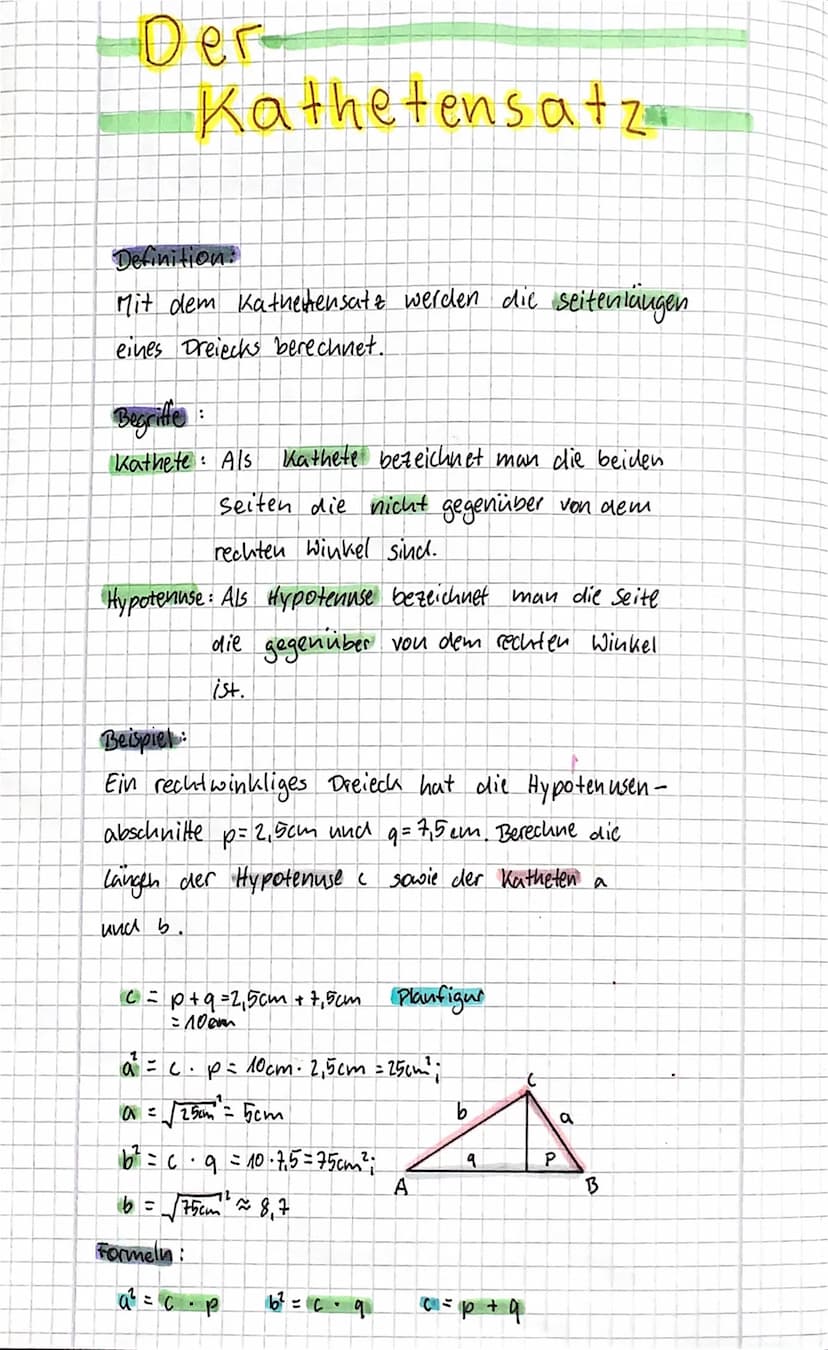 Der
Kathetensatz
Definition:
Mit dem Kathetensatz werden die seitenlängen
eines Dreiecks berechnet.
Begriffe :
Kathete: Als Kathete bezeichnet man die beiden
seiten die nicht gegenüber von dem
rechten Winkel sind.
Hypotenuse: Als Hypotenuse bezeichnet man die seite
die gegenüber von dem rechten Winkel
ist.
Beispiel:
Ein rechtwinkliges Dreieck hat die Hypotenusen-
abschnitte p= 2,5cm und q= 7,5cm. Berechne die
längen der Hypotenuse c sowie der Katheten a
und b.
c = p+q =2,5cm + 7,5cm
= 10cm
Planfigur
a² = c · p = 10cm · 2,5cm = 25cm²;
a = √25cm² = 5cm
b² = c · q = 10 · 7,5 = 75cm²;
b = √75cm² ≈ 8,7
C
b
a
q
p
A
B
Formeln:
a² = c · p b² = c · q c = p + q